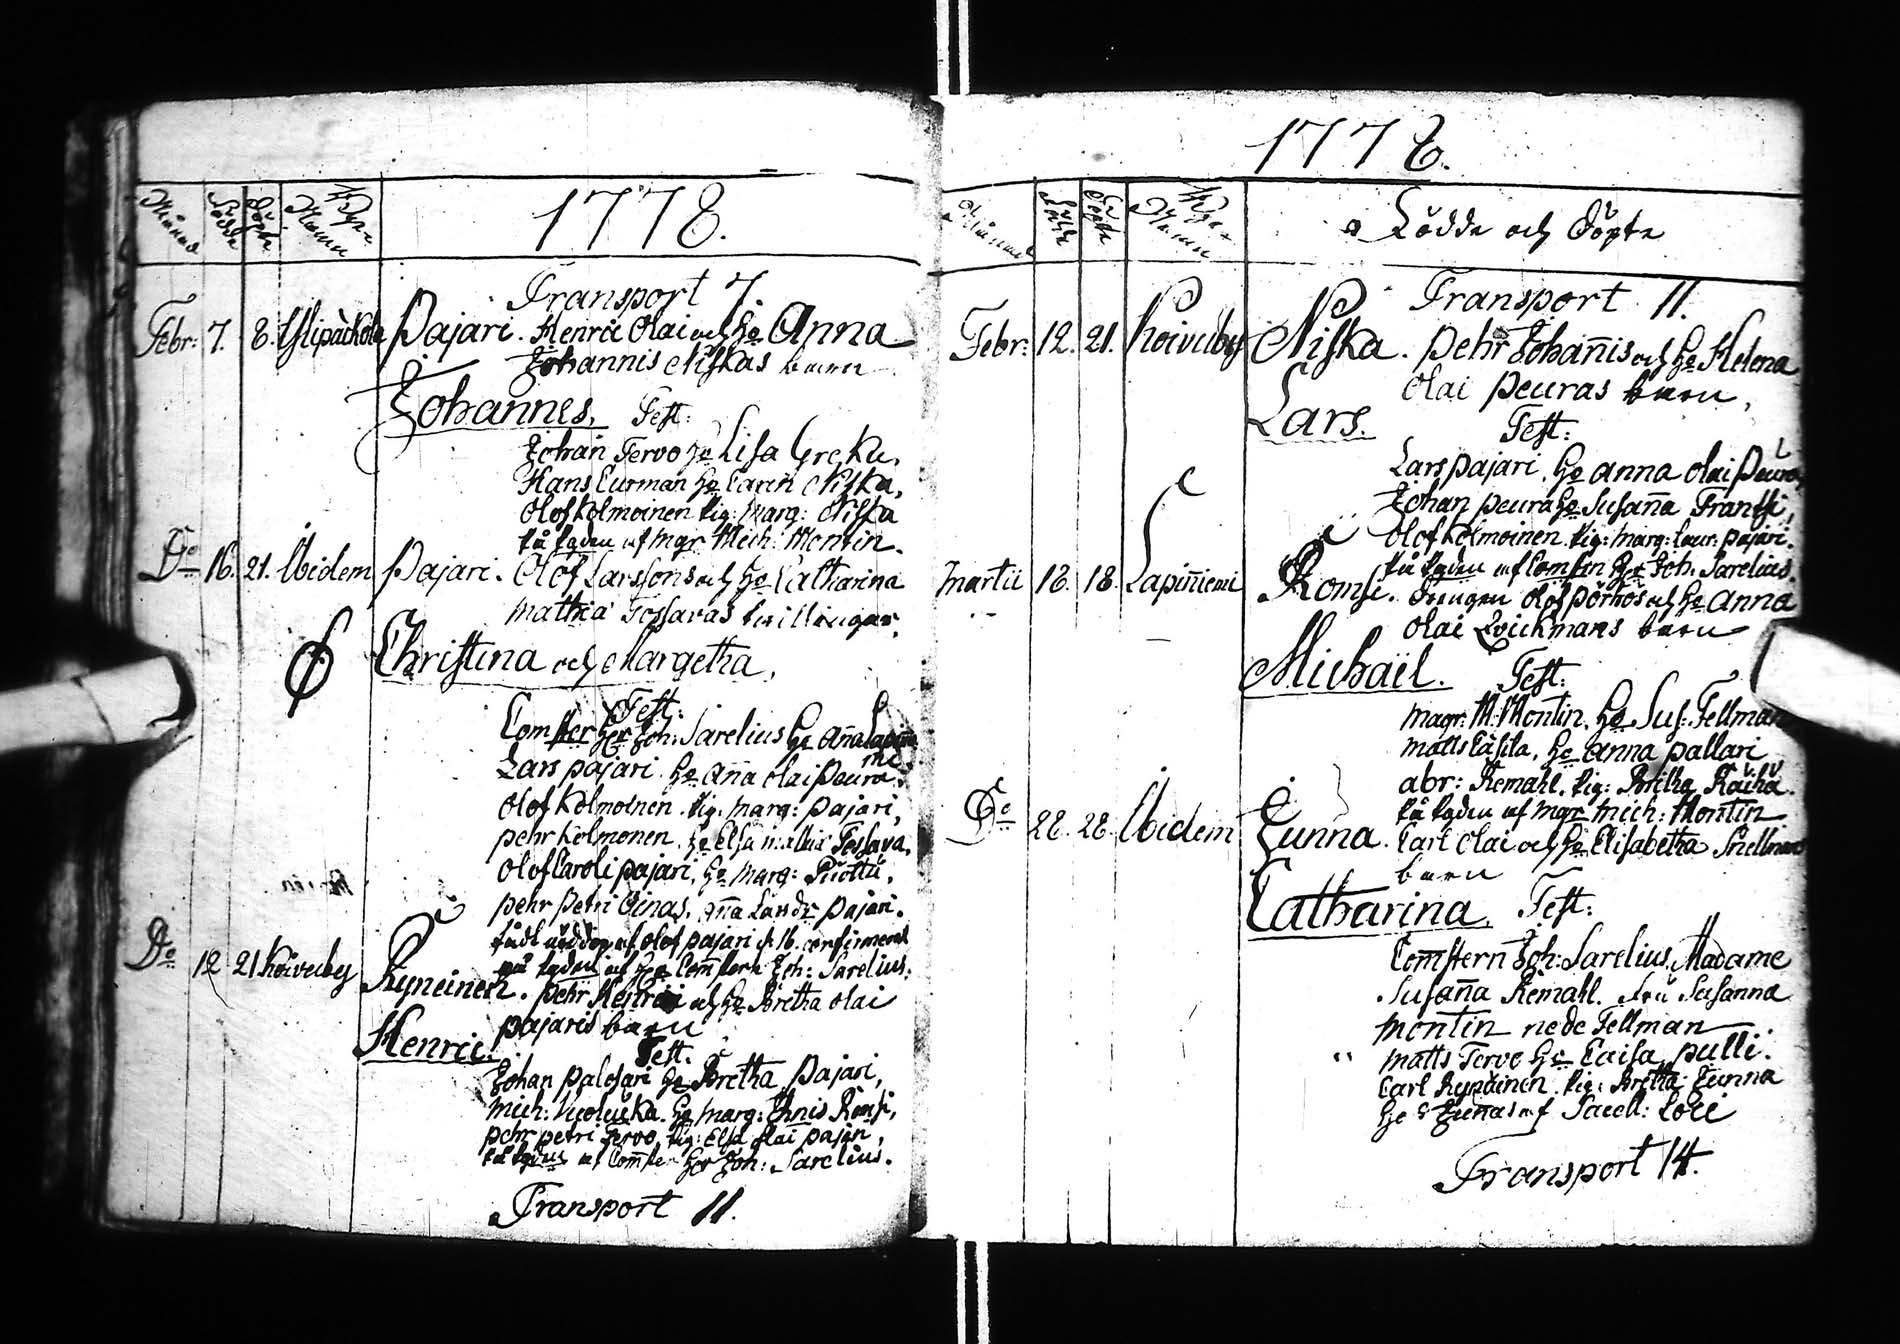 1778.
Månad Födde Döpte Byars Namn
Transport 7.
Febr: 7. 8. Pajari. Henric Olai och H:o Anna
Johannis Niskas barn
Johannes. Test:
Johan Tervo H:o Lisa
Hans Curman H:o Carin Niska,
Olof Kolmoinen Pig: Marg: Niska
af Mgr Mich: Montin.
D:o 16. 21. Ibidem Pajari. Olof Larssons och H:o Catharina
Matthiæ Tossavas twillingar,
Christina och Margetha,
Test:
Comster Her Joh: Sarelius H:o Aña
Lars Pajari. H:o Aña Olai Peura.
Olof Kolmoinen. Pig: Marg: Pajari,
Pehr Kolmonen. H:o Elsa Matthiæ Tossava,
Olof Caroli Pajari, H:o Marg:
Pehr Petri Oinas, Aña Larsdr Pajari.
af Olof Pajari d: 16. confirmerad
af Her Comstern Joh: Sarelius.
D:o 12 21 Koivuby Ryneinen. Pehr Henrici och H:o Bretha Olai
Pajaris barn
Henric. Test.
Johan Palosari H:o Bretha Pajari,
Mich: H:o Marg: Romsi,
Pehr Petri Tervo, Pig: Elsa Olai Pajari,
af Comster Her Joh: Sarelius.
Transport 11.
1778.
Månad Födde Döpte Byars Namn Födde och Döpte
Transport 11.
Febr: 12. 21. Koivuby Niska. Pehr Johañis och H:o Helena
Olai Peuras barn,
Lars. Test:
Lars Pajari, H:o Anna Olai Peura,
Johan Peura H:o Susaña Frantsi,
Olof Kolmoinen. Pig: Marg: Laur: Pajari.
af Comstern Her Joh: Sarelius.
Martii 18. 18. Lapiñiemi Romsi. Drengen Olof Pörhös och H:o Anna
Olai Qvickmans barn
Michaël. Test:
Magr: M: Montin. H:o Sus: Fellman
Matts H:o Anna Pallari
Abr: Remahl. Pig: Britha Räihä.
af Mgr Mich: Montin
D:o 28. 28. Ibidem Junna. Carl Olai och H:o Elisabetha Snellman
barn
Catharina. Test:
Comstern Joh: Sarelius, Madame
Susaña Remahl. Fru Susanna
Montin nede Fellman
Matts Tervo H:o Caisa Pulli.
Carl Rynäinen. Pig: Bretha Junna
af Sacell:
Transport 14.